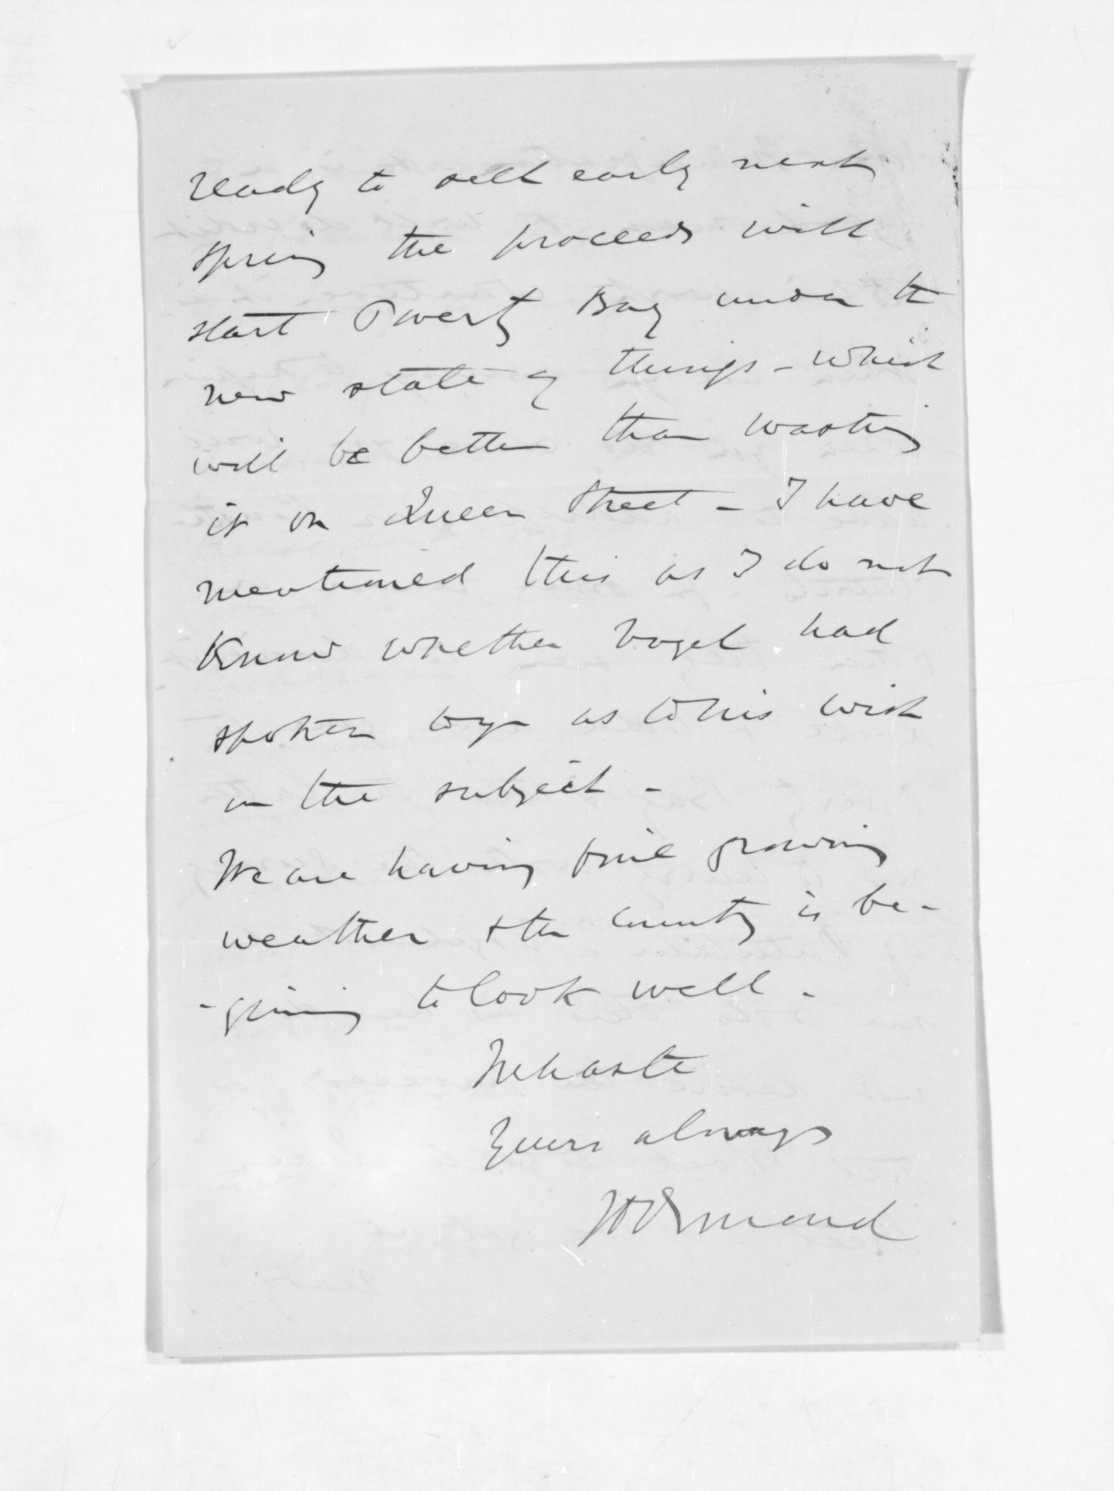 ready to sell early next
spring the proceeds will
start Poverty Bay under the
new state of things - which
will be better than wasting
it on Queen Street - I have
mentioned this as I do not
know whether Vogel had
spoken to you as to his wish
on the subject -
We are having fine growing
weather & the country is be-
-gining to look well -
In haste
Yours always
JDOrmond